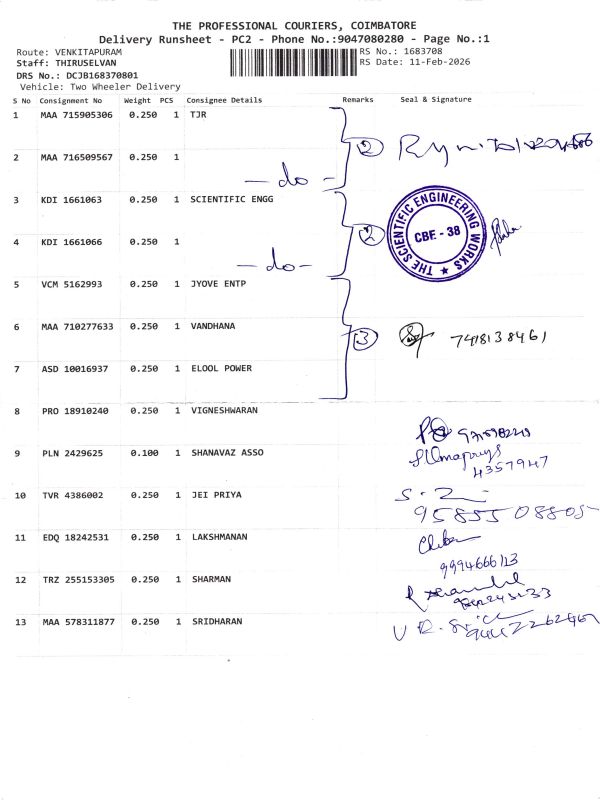 THE PROFESSIONAL COURIERS, COIMBATORE
Delivery Runsheet - PC2 - Phone No.:9047080280 - Page No.:1
Route: VENKITAPURAM
RS No.: 1683708
Staff: THIRUSELVAN
RS Date: 11-Feb-2026
DRS No.: DCJB168370801
Vehicle: Two Wheeler Delivery
S No Consignment No Weight PCS Consignee Details Remarks Seal & Signature
1 MAA 715905306 0.250 1 TJR
2 MAA 716509567 0.250 1
— do — 2
3 KDI 1661063 0.250 1 SCIENTIFIC ENGG
THE SCIENTIFIC ENGINEERING WORKS ★
CBE - 38
4 KDI 1661066 0.250 1
— do — 2
5 VCM 5162993 0.250 1 JYOVE ENTP
6 MAA 710277633 0.250 1 VANDHANA
3 7418138461
7 ASD 10016937 0.250 1 ELOOL POWER
8 PRO 18910240 0.250 1 VIGNESHWARAN
9 PLN 2429625 0.100 1 SHANAVAZ ASSO
4357947
10 TVR 4386002 0.250 1 JEI PRIYA
9585508805
11 EDQ 18242531 0.250 1 LAKSHMANAN
9994666113
12 TRZ 255153305 0.250 1 SHARMAN
13 MAA 578311877 0.250 1 SRIDHARAN